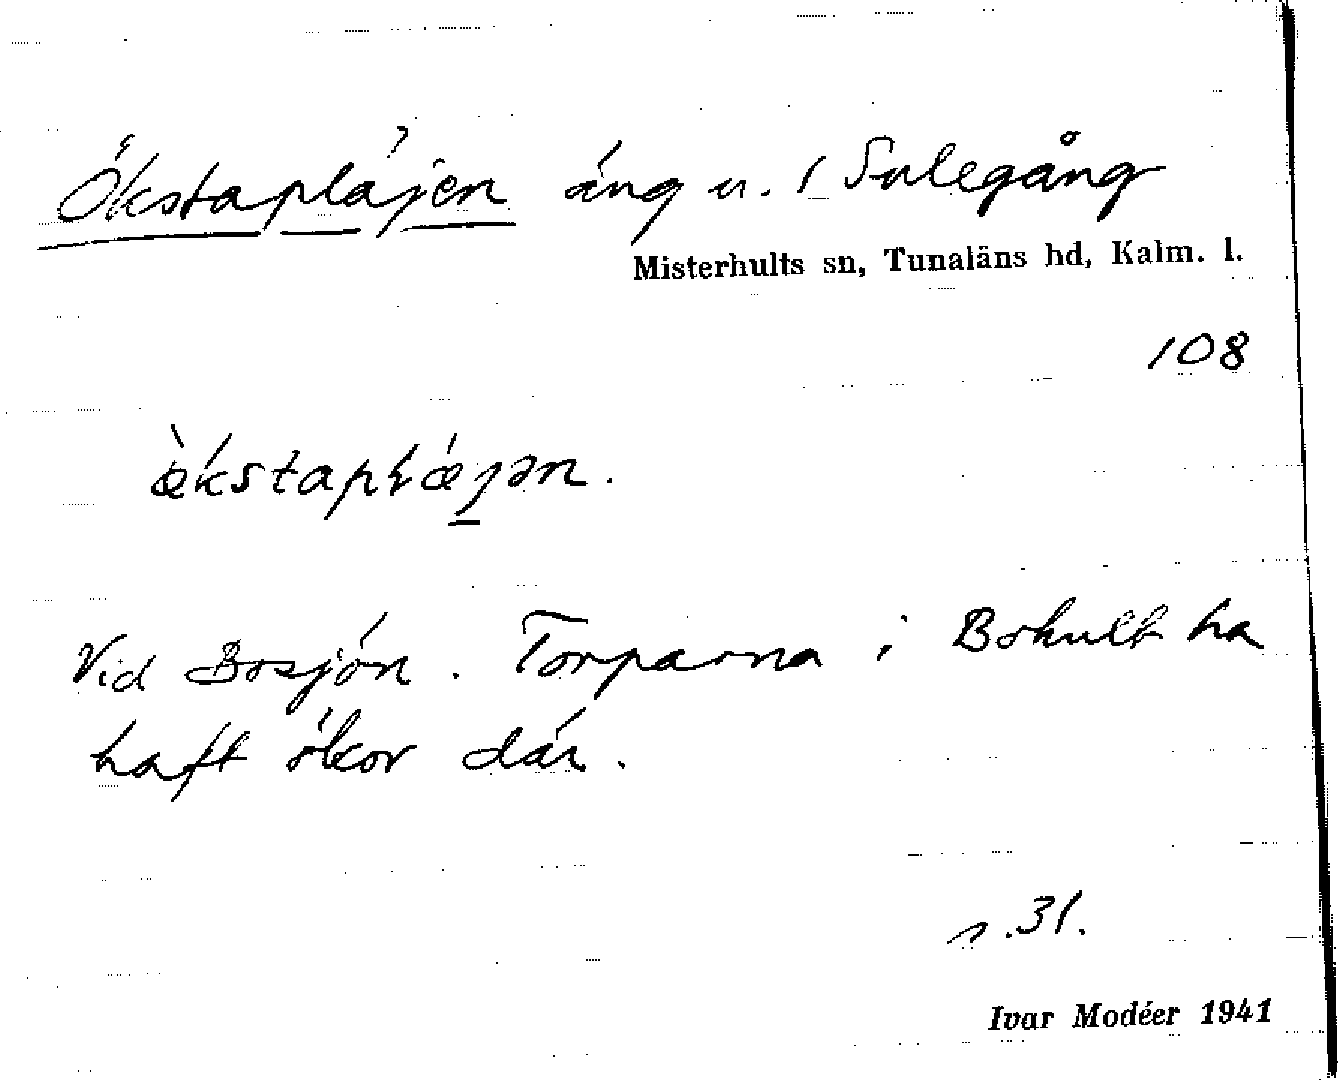 Ökstapläjen äng u. 1 Sulegång
Misterhults sn, Tunaläns hd, Kalm. l.
108
Vid Bosjön. Torparna i Bohult ha
haft ökor där.
s. 31.
Ivar Modéer 1941